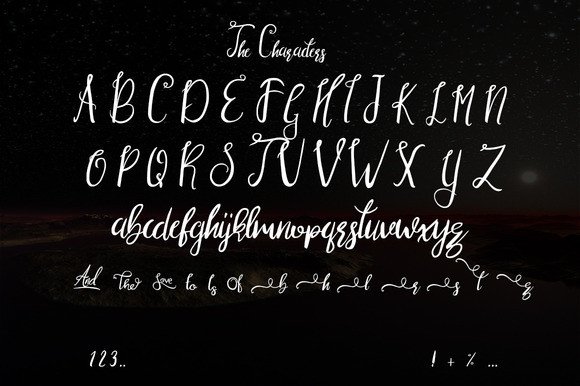 The Characters
A B C D E F G H I J K L M N
O P Q R S T U V W X Y Z
abcdefghijklmnopqrstuvwxyz
And The Love to Is Of b h l r s t q
123.. ! + % ...